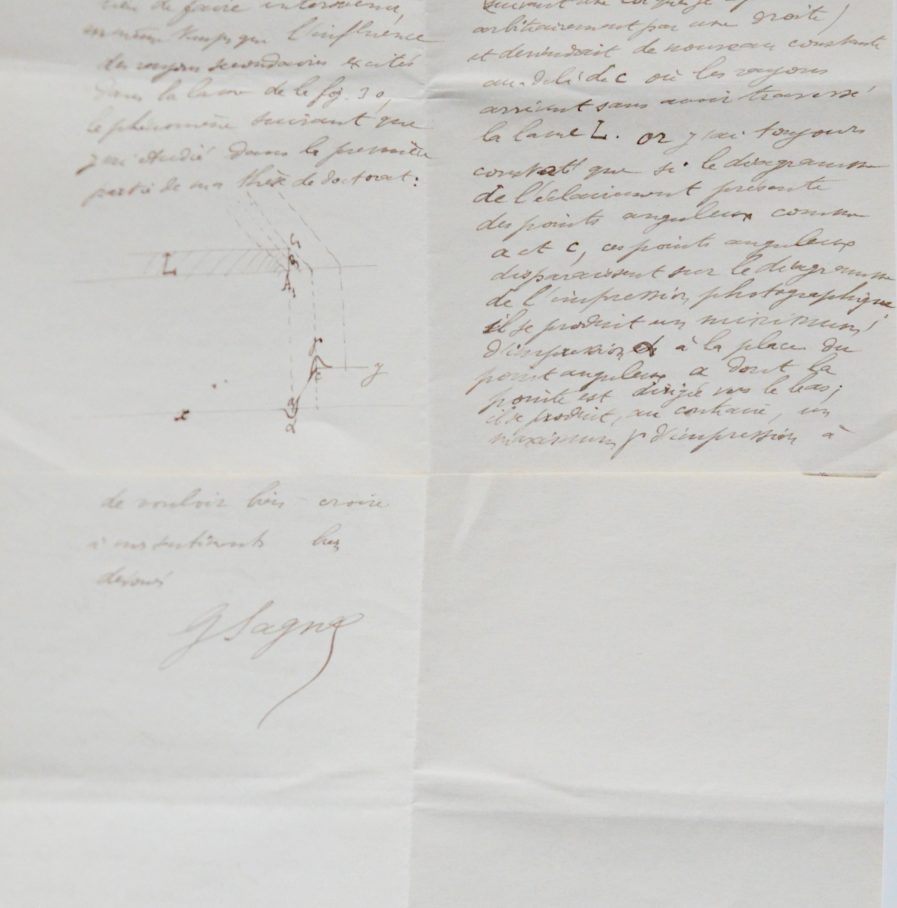 lieu de faire intervenir,
en même temps que l'influence
des rayons secondaires excités
dans la lame de la fig. 30,
le phénomène suivant que
j'ai étudié dans la première
partie de ma thèse de doctorat:
L
x
a
γ
y
de vouloir bien croire
à mes sentiments bien
dévoués
G Sagnac
suivant une
arbitrairement par une droite)
et deviendrait de nouveau constante
au-delà de c où les rayons
arrivent sans avoir traversé
la lame L. or j'ai toujours
constaté que si le diagramme
de l'éclairement présente
des points anguleux comme
a et c, ces points anguleux
disparaissent sur le diagramme
de l'impression photographique
il se produit un minimum
d'impression α à la place du
point anguleux a dont la
pointe est dirigée vers le bas;
il se produit, au contraire, un
maximum γ d'impression à